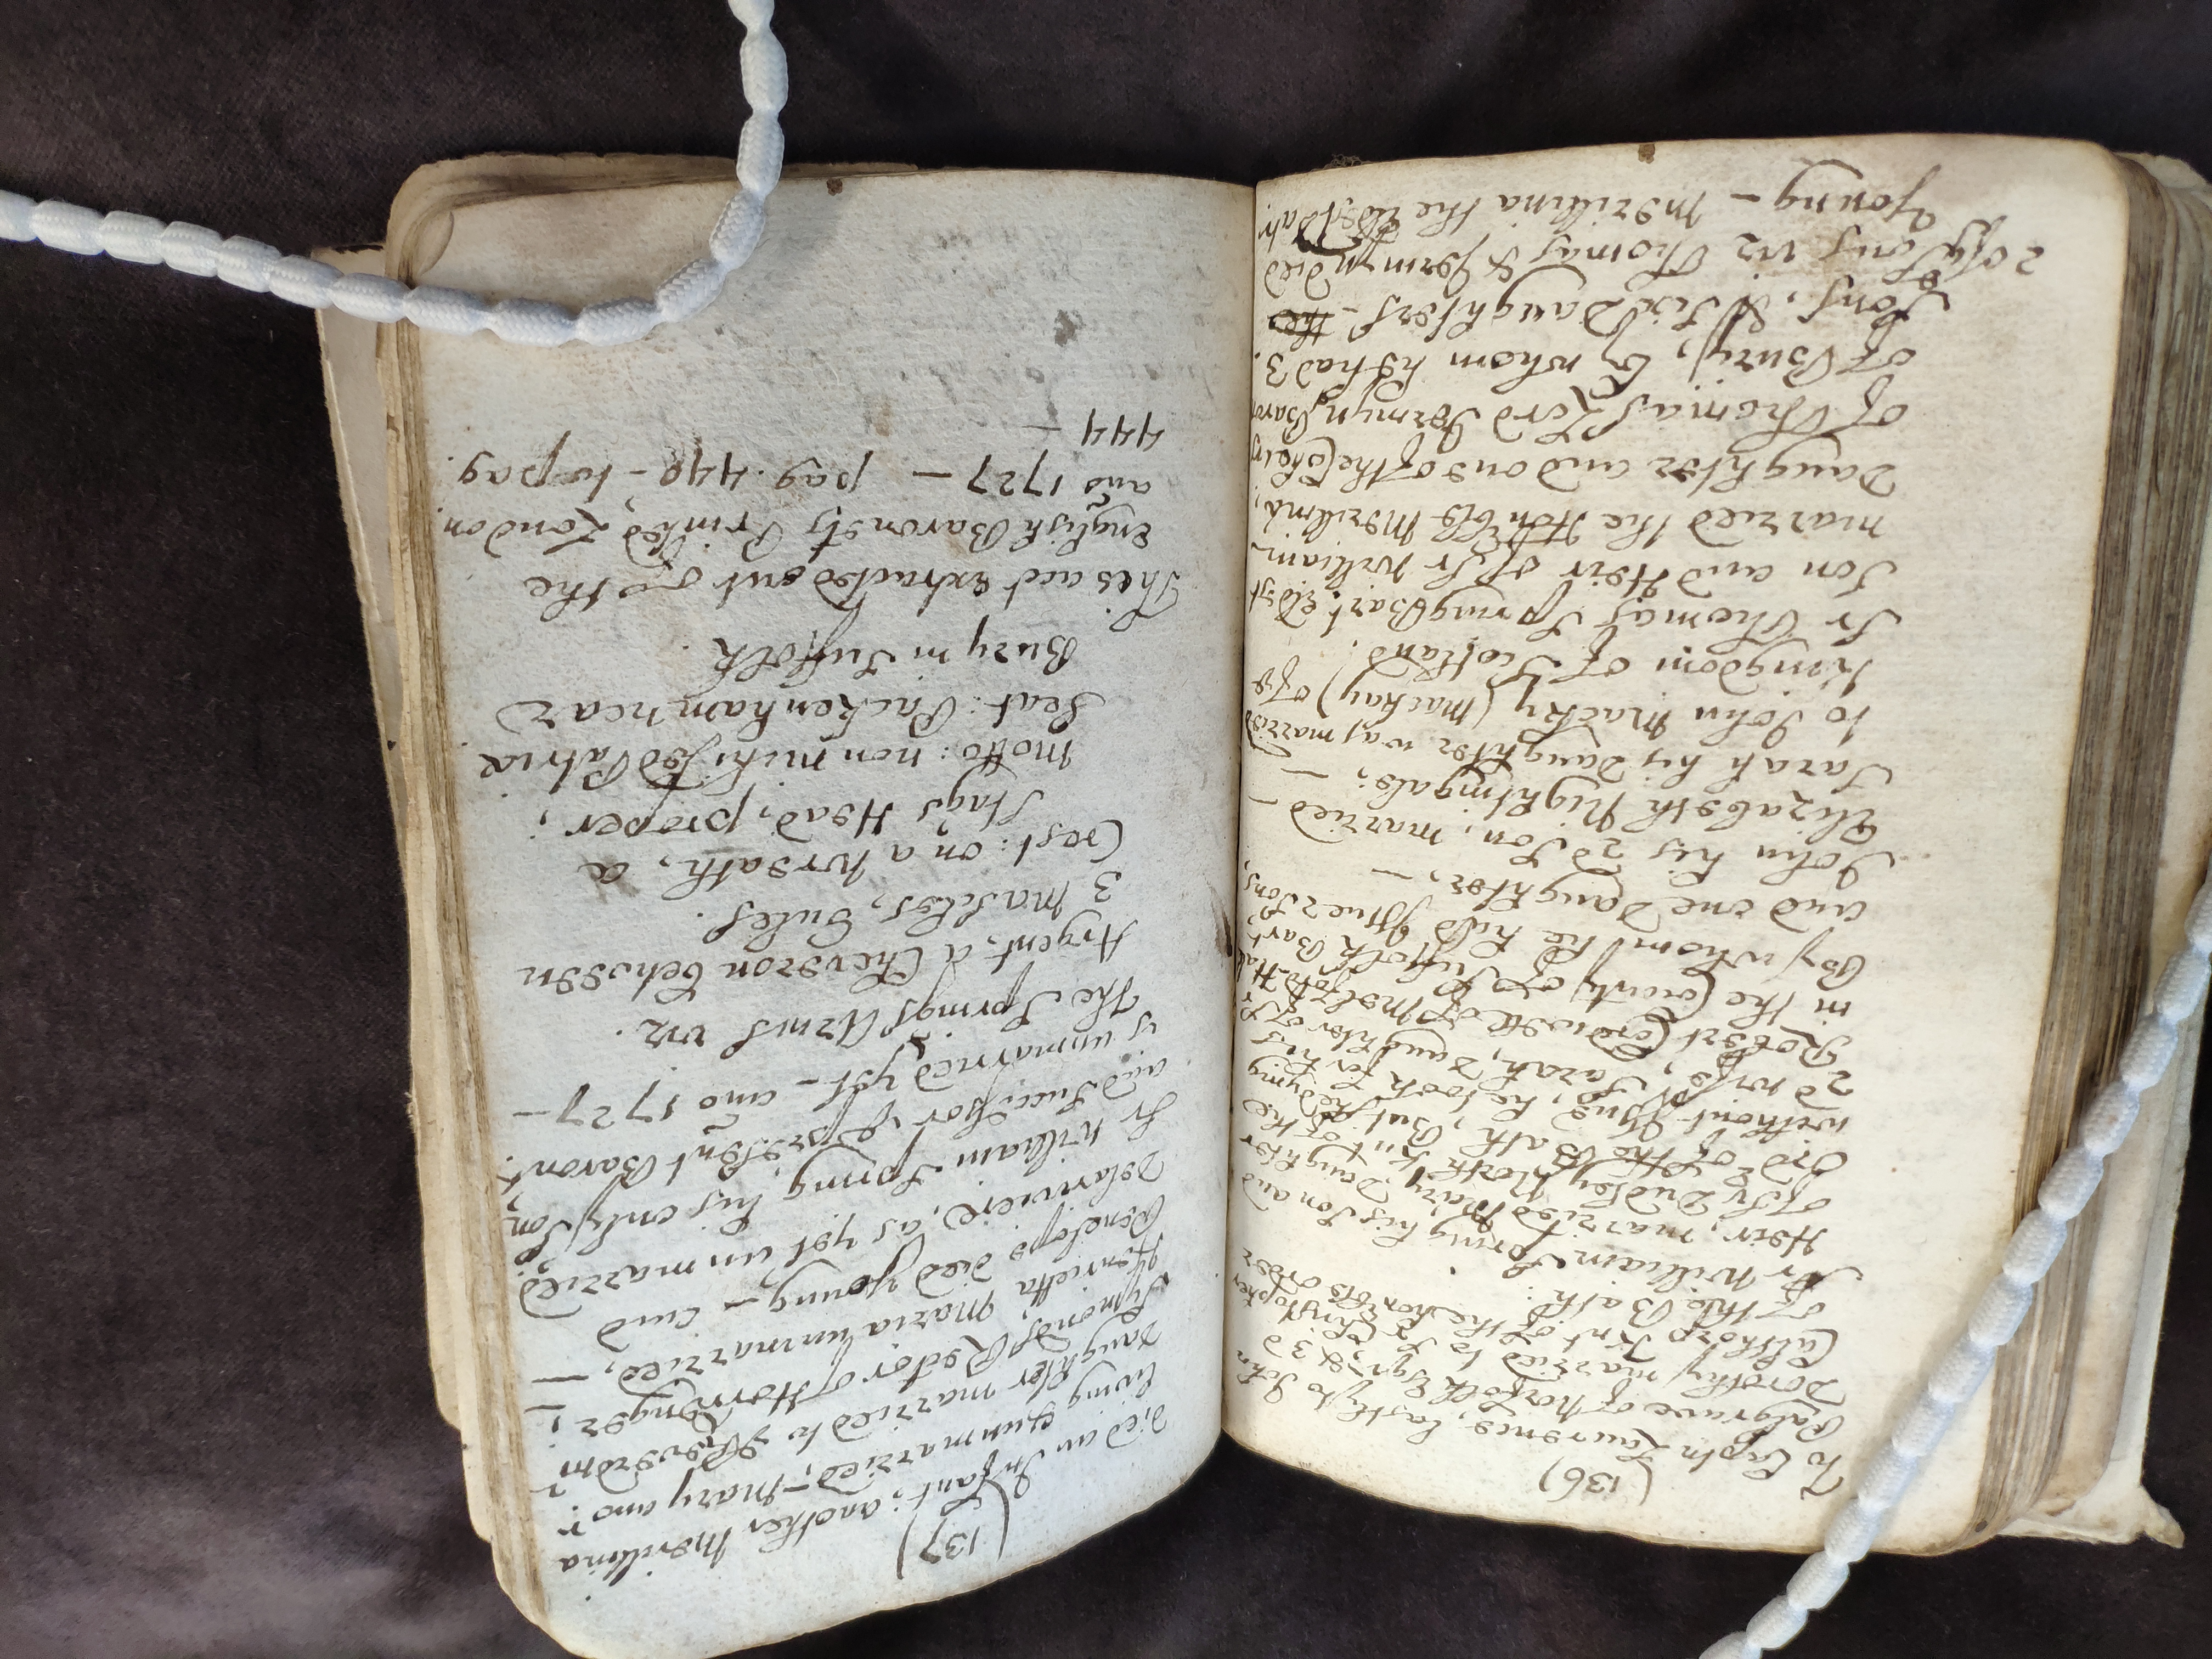 (136)
To Captn Laurence, lastly to John
Palgrave of Norfolk Esqr, & 3d
Dorothy married to Sr Christopher
Calthorp Knt of the Honble Order
of the Bath:
Sr William Spring his Son and
Heir, married Mary, Daughter
of Sr Dudley North Knt of the
Ordr of the Bath, But she dying
without Issue, he took for his
2d wife, Sarah, Daughter of Sr
Robert Cordwell of Melford-Hall
in the County of Suffolk Bart
By whom he had four Sons,
and one Daughter, —
John his 2d Son, married —
Elizabeth Nightingale; —
Sarah his Daughter was married
to John Macky (Mackay) of ye
Kingdom of Scotland.
Sr Thomas Spring Bart Eldest
Son and Heir of Sr William
married the Honble Merilina,
Daughter and one of the Coheirs
of Thomas Lord Jermyn Baron
of Bury, by whom he had 3
Sons, & Six Daughters - the
2 of ye Sons viz Thomas & Jermyn died
Young — Merilina the Eldest Dahr.
(137)
died an Infant; another Merilina
living & unmarried, - Mary anor
daughter married to ye Reverdm
Symonds Rector of Horringer; —
Henrietta Maria unmarried, —
Penelope died young — and
Delariviere, as yet unmarried
Sr William Spring, his only Son,
and Successor ye present Baront.
is unmarried yet - ano 1727 —
The Springs Arms viz.
Argent, a Cheveron between
3 Mascles, Gules.
Crest: on a wreath, a
Stags Head, proper;
Motto: non mihi sed Patria
Seat: Packenham near
Bury in Suffolk.
This acct extracted out of the
English Baronets Printed London.
ano 1727 — pag. 440 - to pag.
444 —